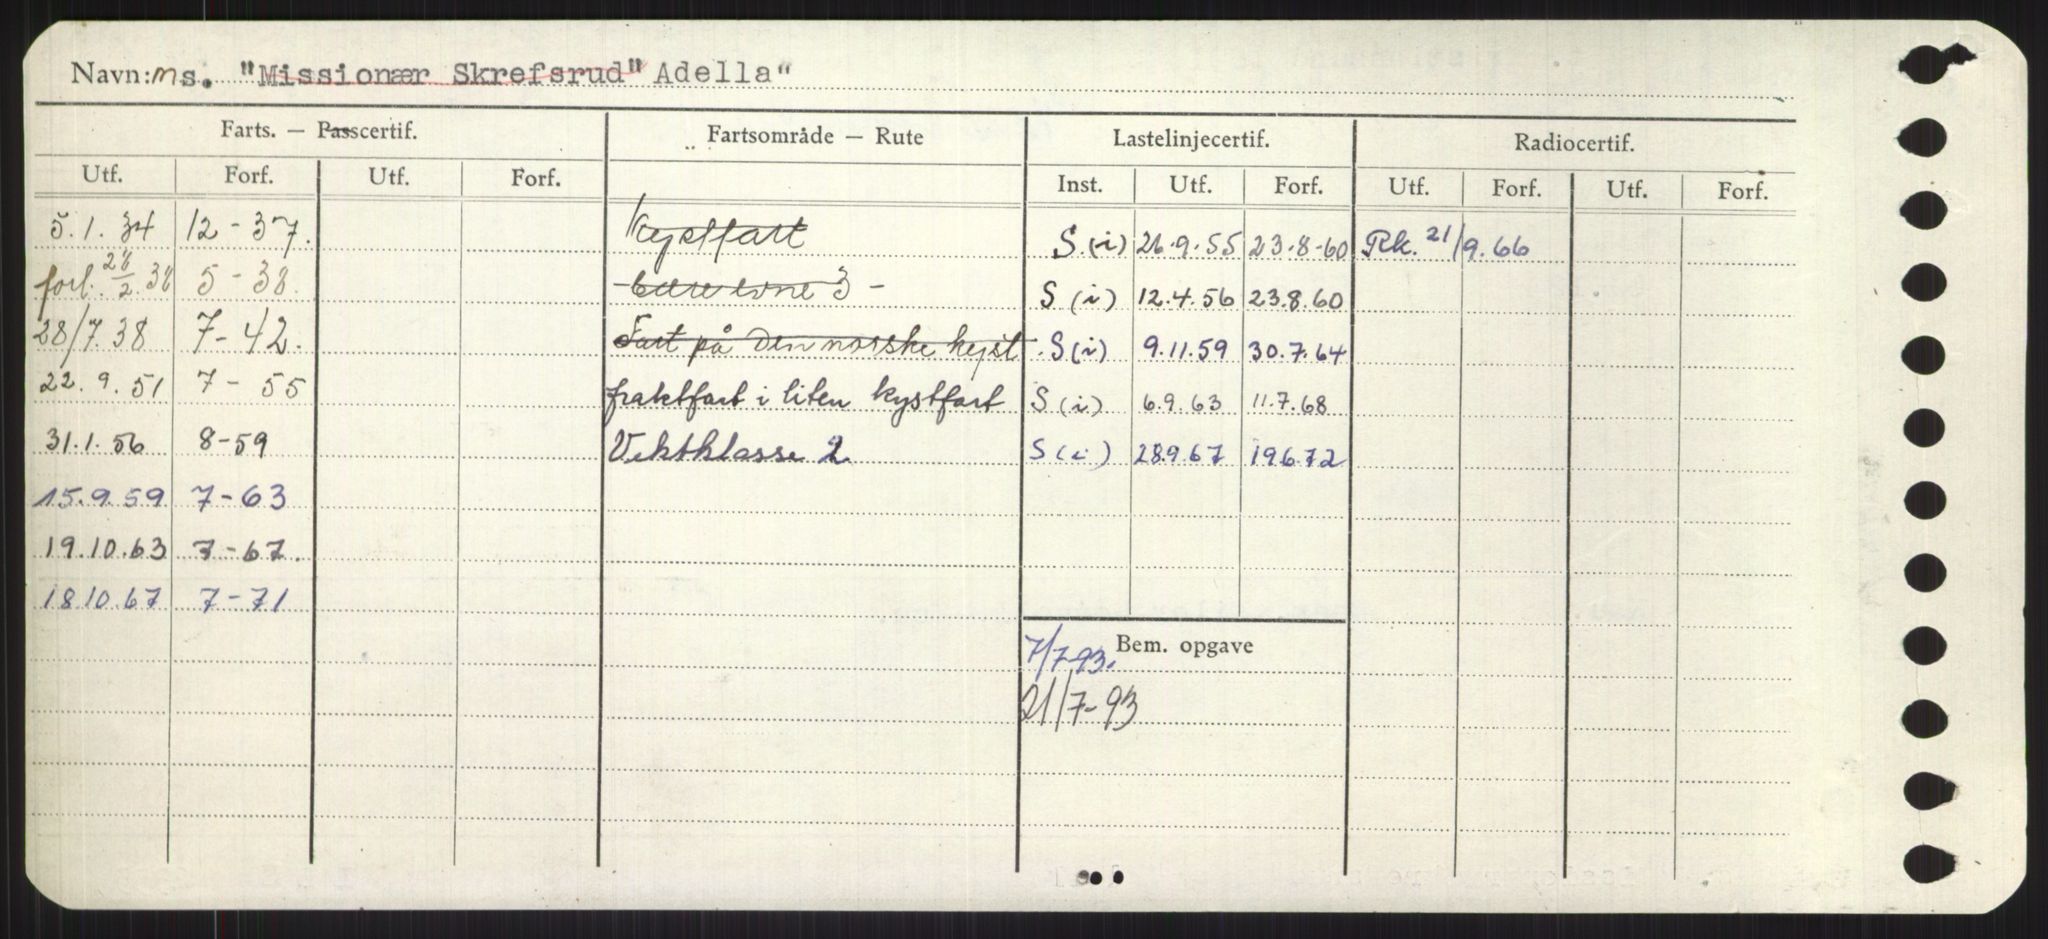 Navn: ms. "Missionær Skrefsrud" Adella"
Farts. — Passcertif. Fartsområde — Rute Lastelinjecertif. Radiocertif.
Utf. Forf. Utf. Forf. Inst. Utf. Forf. Utf. Forf. Utf. Forf.
5.1.34 12-37. Kystfart S.(i) 26.9.55 23.8-60 Rk. 21/9.66
forl. 28/2.38 5-38. -bæreevne 3- S (i) 12.4.56 23.8.60
28/7.38 7-42. Fart på den norske kyst S(i) 9.11.59 30.7.64
22.9.51 7-55 fraktfart i liten kystfart S (i) 6.9.63 11.7.68
31.1.56 8-59 Vektklasse 2 S (i) 28.9.67 19.6.72
15.9.59 7-63
19.10.63 7-67.
18.10.67 7-71
Bem. opgave
7/7-93.
21/7-93